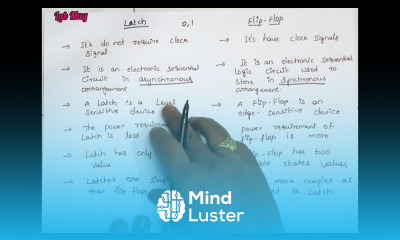 Lab Mug
Latch 0,1
→ It's do not require clock
signal.
→ It is an electronic sequential
Circuit in asynchronous
arrangement
→ A Latch is a Level
sensitive device
→ The power
Latch is less
→ Latch has only
value
→ Latches are
than flip
Flip-Flop
→ It's have clock signals
→ It is an electronic sequential
logic circuit used to
store in synchronous
arrangement.
→ A Flip-Flop is an
edge-sensitive device
power requirement of
flip-flop is more.
-Flop has two
values
more complex as
to Latch
Mind
Luster